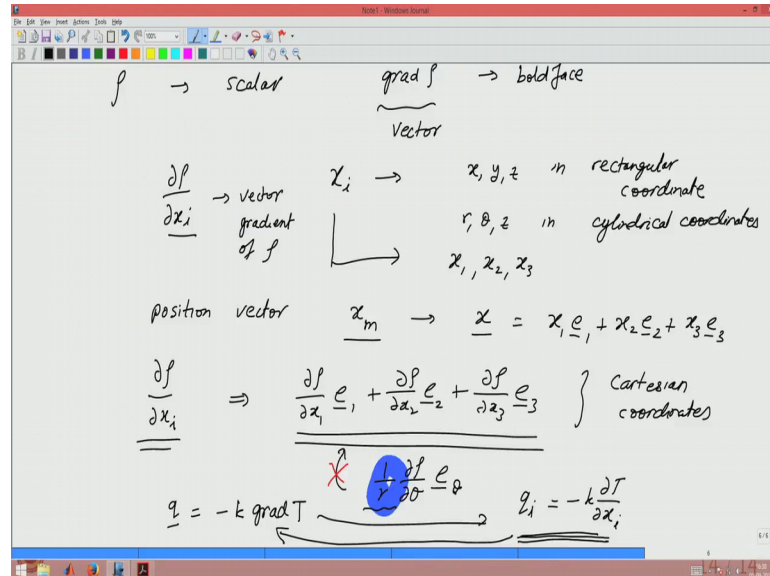 Note1 - Windows Journal
File Edit View Insert Actions Tools Help
100%
B I
ρ → scalar grad ρ → boldface
vector
∂ρ/∂x_i → vector gradient of ρ x_i → x, y, z in rectangular coordinate
r, θ, z in cylindrical coordinates
x_1, x_2, x_3
position vector x_m → x = x_1 e_1 + x_2 e_2 + x_3 e_3
∂ρ/∂x_i ⇒ ∂ρ/∂x_1 e_1 + ∂ρ/∂x_2 e_2 + ∂ρ/∂x_3 e_3 } Cartesian coordinates
1/r ∂ρ/∂θ e_θ
q = -k grad T q_i = -k ∂T/∂x_i
6/6
6